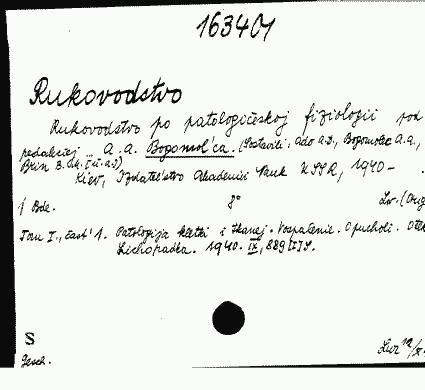 163401
Rukovodstvo
Rukovodstvo po patologičeskoj fiziologii pod
redakciej A.A. Bogomol'ca. (Sostavili: Ado A.D., Bogomolec A.A.,
Brin B. [u.a.])
Kiev, Izdatel'stvo Akademii Nauk USSR, 1940-
1 Bde. 8° Lw. (Orig
Tom I., čast' 1. Patologija kletki i tkanej. Vospalenie. Opucholi. Otek
Lichoradka. 1940. IX, 889 S.
S
Gesch.